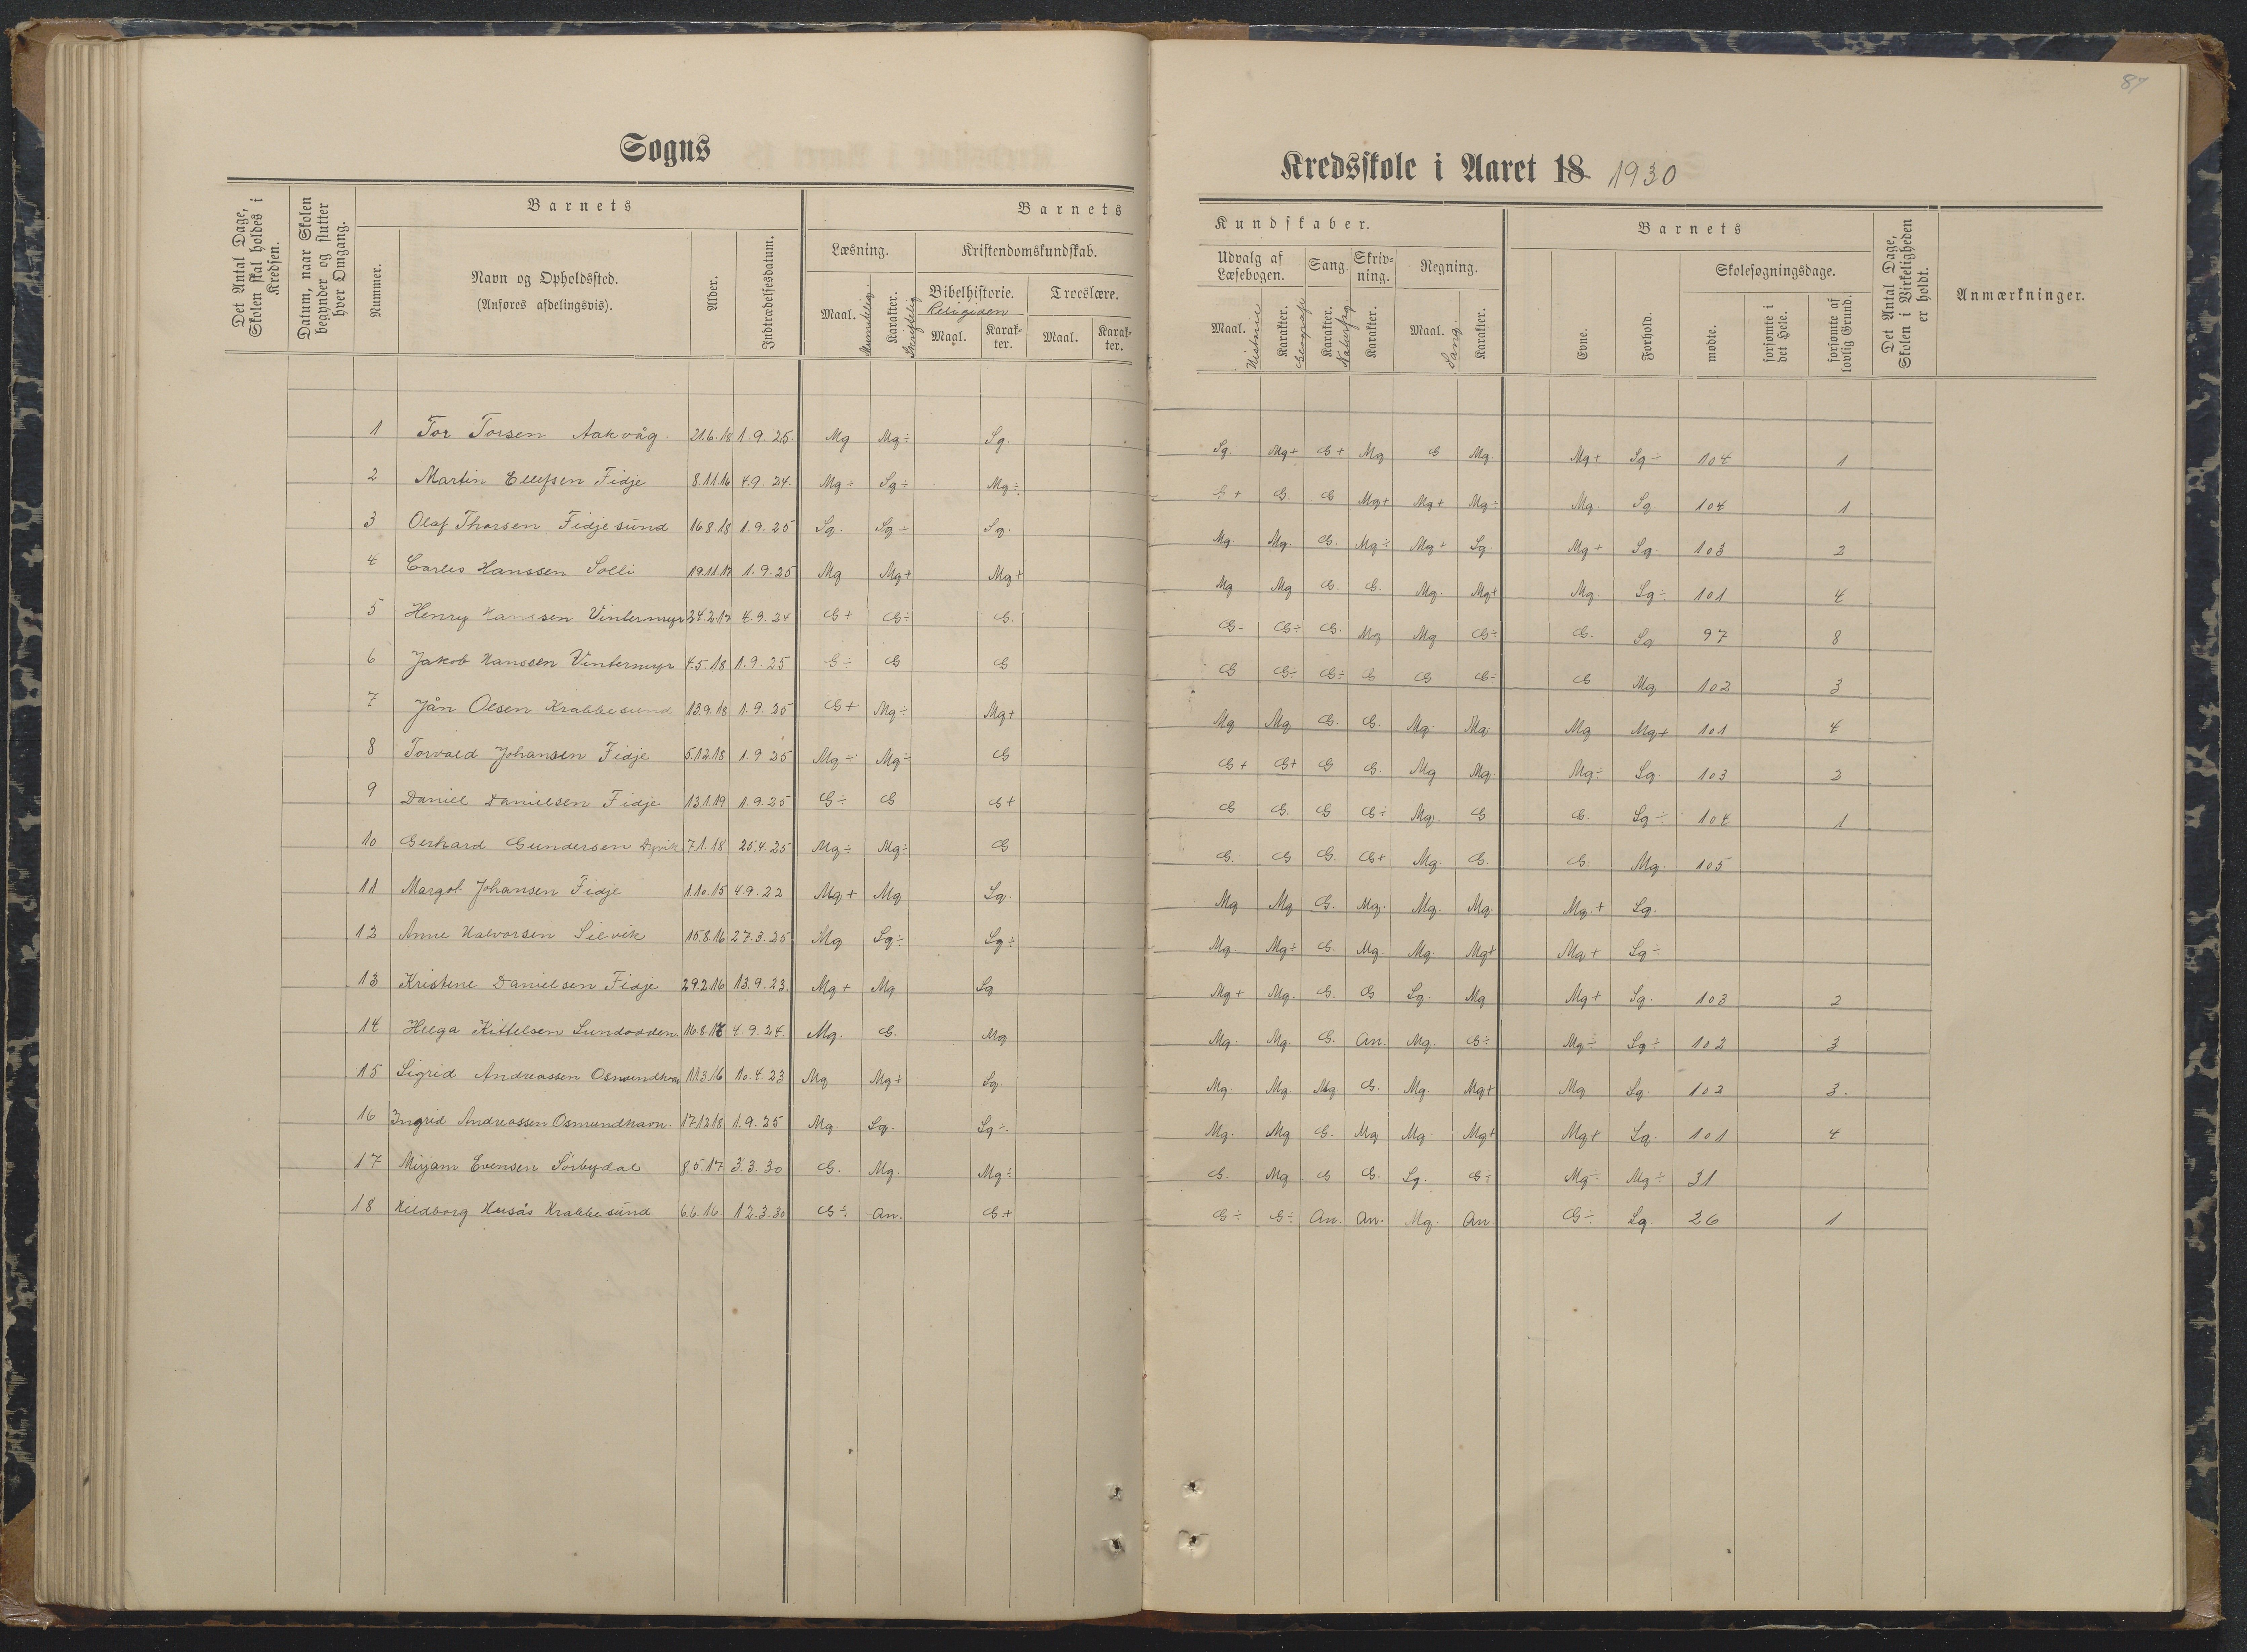 87
Sogns
Kredsskole i Aaret 18 1930
Det Antal Dage, Skolen skal holdes i Kredsen.
Datum, naar Skolen begynder og slutter hver Omgang.
Barnets
Nummer.
Navn og Opholdssted.
(Anføres afdelingsvis).
Alder.
Indtrædelsesdatum.
Barnets
Læsning.
Maal. Mundtlig.
Karakter. Skriftlig
Kristendomskundskab.
Bibelhistorie.
Religion
Maal.
Karakter.
Troeslære.
Maal.
Karakter.
Kundskaber.
Udvalg af Læsebogen.
Maal. Historie
Karakter. Geografi
Sang.
Karakter. Naturfag
Skrivning.
Karakter.
Regning.
Maal. Sang.
Karakter.
Barnets
Evne.
Forhold.
Skolesøgningsdage.
mødte.
forsømte i det Hele.
forsømte af lovlig Grund.
Det Antal Dage, Skolen i Virkeligheden er holdt.
Anmærkninger.
1 Tor Torsen Aakvåg. 21.6.18 1.9.25. Mg Mg÷ Sg. Sg. Mg+ G+ Mg G Mg. Mg+ Sg÷ 104 1
2 Martin Ellefsen Fidje 8.11.16 4.9.24. Mg÷ Sg÷ Mg÷ G+ G. G Mg+ Mg+ Mg÷ Mg. Sg. 104 1
3 Olaf Thorsen Fidjesund 16.8.18 1.9.25 Sg. Sg÷ Sg. Mg. Mg. G. Mg÷ Mg+ Sg. Mg+ Sg. 103 2
4 Carles Hanssen Solli 19.11.17 1.9.25 Mg Mg+ Mg+ Mg Mg G. G. Mg. Mg+ Mg. Sg÷ 101 4
5 Henry Hanssen Vintermyr 24.2.17 4.9.24 G+ G÷ G. G- G÷ G. Mg Mg G÷ G. Sg 97 8
6 Jakob Hanssen Vintermyr 4.5.18 1.9.25 G÷ G G G G÷ G÷ G G G÷ G Mg 102 3
7 Jån Olsen Krabbesund 13.9.18 1.9.25 G+ Mg÷ Mg+ Mg Mg G. G. Mg. Mg. Mg Mg+ 101 4
8 Torvald Johansen Fidje 5.12.18 1.9.25 Mg÷ Mg÷ G G+ G+ G G. Mg Mg. Mg÷ Sg. 103 2
9 Daniel Danielsen Fidje 13.1.19 1.9.25 G÷ G G+ G G. G G÷ Mg. G G. Sg÷ 104 1
10 Gerhard Gundersen Dyvik 7.1.18 25.4.25 Mg÷ Mg÷ G G. G G. G+ Mg. G. G. Mg. 105
11 Margot Johansen Fidje 1.10.15 4.9.22 Mg+ Mg Sg. Mg Mg G. Mg. Mg. Mg. Mg.+ Sg.
12 Anne Halvorsen Silvik 15.8.16 27.3.25 Mg Sg÷ Sg÷ Mg. Mg÷ G. Mg. Mg. Mg+ Mg+ Sg÷
13 Kristine Danielsen Fidje 29.2.16 13.9.23. Mg+ Mg Sg Mg+ Mg. G. G Sg. Mg Mg+ Sg. 103 2
14 Helga Kittelsen Sundodden 16.8.16 4.9.24. Mg. G. Mg Mg. Mg. G. An. Mg. G÷ Mg÷ Sg÷ 102 3
15 Sigrid Andreassen Osmundhavn 11.3.16 10.4.23 Mg Mg+ Sg. Mg. Mg. Mg G. Mg. Mg+ Mg Sg. 102 3.
16 Ingrid Andreassen Osmundhavn. 17.12.18 1.9.25 Mg. Sg. Sg÷. Mg. Mg G. Mg Mg. Mg+ Mg+ Sg. 101 4
17 Mirjam Evensen Sörbydal 8.5.17 3.3.30 G. Mg. Mg÷ G. Mg G G. Sg. G÷ Mg÷ Mg÷ 31
18 Husås Krabbesund 6.6.16. 12.3.30 G÷ An. G+ G÷ G÷ An. An. Mg. An. G÷ Sg. 26 1